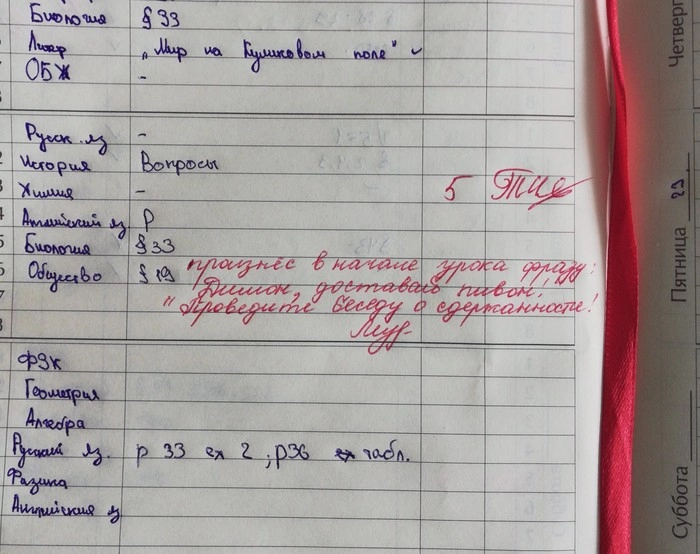 Биология § 33
Литер „Мир на Куликовом поле"
ОБЖ -
Четверг
Русск. яз -
История Вопросы
Химия - 5
Английский яз P
Биология § 33
Общество § 19 произнёс в начале урока фразу:
Димон, доставай пивон!
"Проведите беседу о сдержанности!
Пятница 29
ФЗК
Геометрия
Алгебра
Русский яз. р 33 ех 2 ; р36 ех табл.
Физика
Английский яз
Суббота